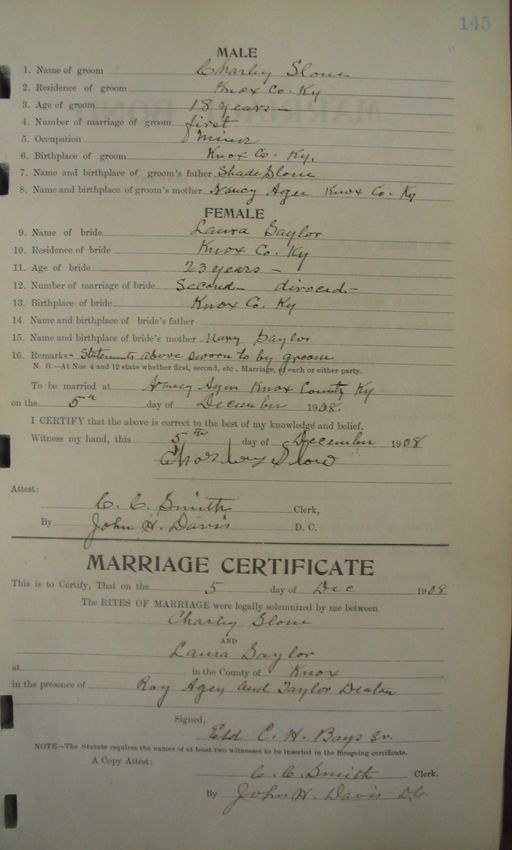 145
MALE
1. Name of groom Charley Slone
2. Residence of groom Knox Co. Ky
3. Age of groom 18 years
4. Number of marriage of groom first
5. Occupation miner
6. Birthplace of groom Knox Co. Ky.
7. Name and birthplace of groom's father Shade Slone
8. Name and birthplace of groom's mother Nancy Agee Knox Co. Ky
FEMALE
9. Name of bride Laura Saylor
10. Residence of bride Knox Co. Ky
11. Age of bride 23 years –
12. Number of marriage of bride Second– divorced–
13. Birthplace of bride Knox Co. Ky
14. Name and birthplace of bride's father
15. Name and birthplace of bride's mother Mary Saylor
16. Remarks Statements above sworn to by groom
N. B.—At Nos. 4 and 12 state whether first, second, etc. Marriage, of each or either party.
To be married at Nancy Knox County Ky
on the 5th day of December 1908.
I CERTIFY that the above is correct to the best of my knowledge and belief.
Witness my hand, this 5th day of December 1908
Attest:
C. C. Smith Clerk,
By John H. Davis D. C.
MARRIAGE CERTIFICATE
This is to Certify, That on the 5 day of Dec 1908
The RITES OF MARRIAGE were legally solemnized by me between
Charley Slone
AND
Laura Saylor
at in the County of Knox
in the presence of Roy Agey and Taylor Deaton
Signed, Eld C. H. Bays Jr.
NOTE—The Statute requires the names of at least two witnesses to be inserted in the foregoing certificate.
A Copy Attest:
C. C. Smith Clerk.
By John H. Davis D.C.